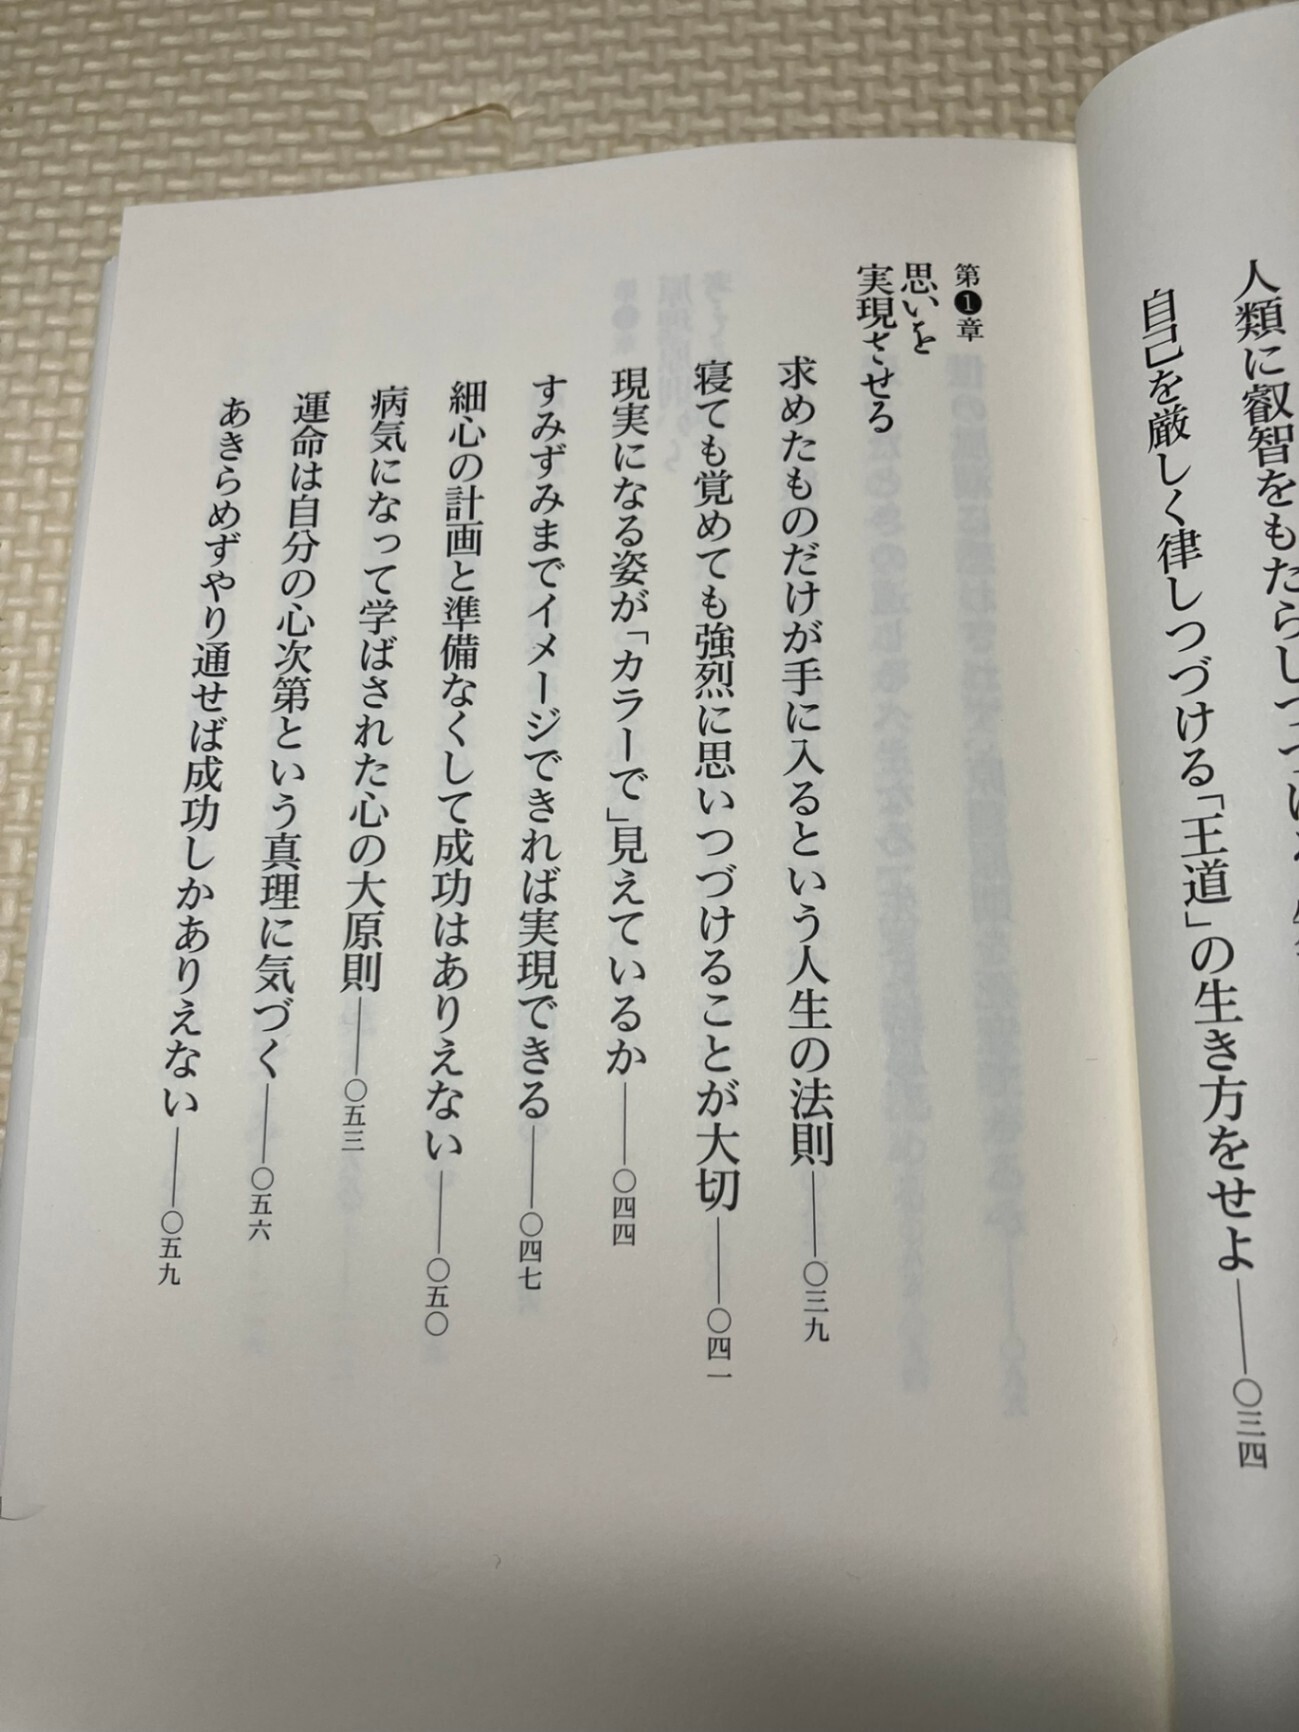 人類に叡智をもたらしつづける
自己を厳しく律しつづける「王道」の生き方をせよ――〇三四
第❶章
思いを
実現させる
求めたものだけが手に入るという人生の法則――〇三九
寝ても覚めても強烈に思いつづけることが大切――〇四一
現実になる姿が「カラーで」見えているか――〇四四
すみずみまでイメージできれば実現できる――〇四七
細心の計画と準備なくして成功はありえない――〇五〇
病気になって学ばされた心の大原則――〇五三
運命は自分の心次第という真理に気づく――〇五六
あきらめずやり通せば成功しかありえない――〇五九